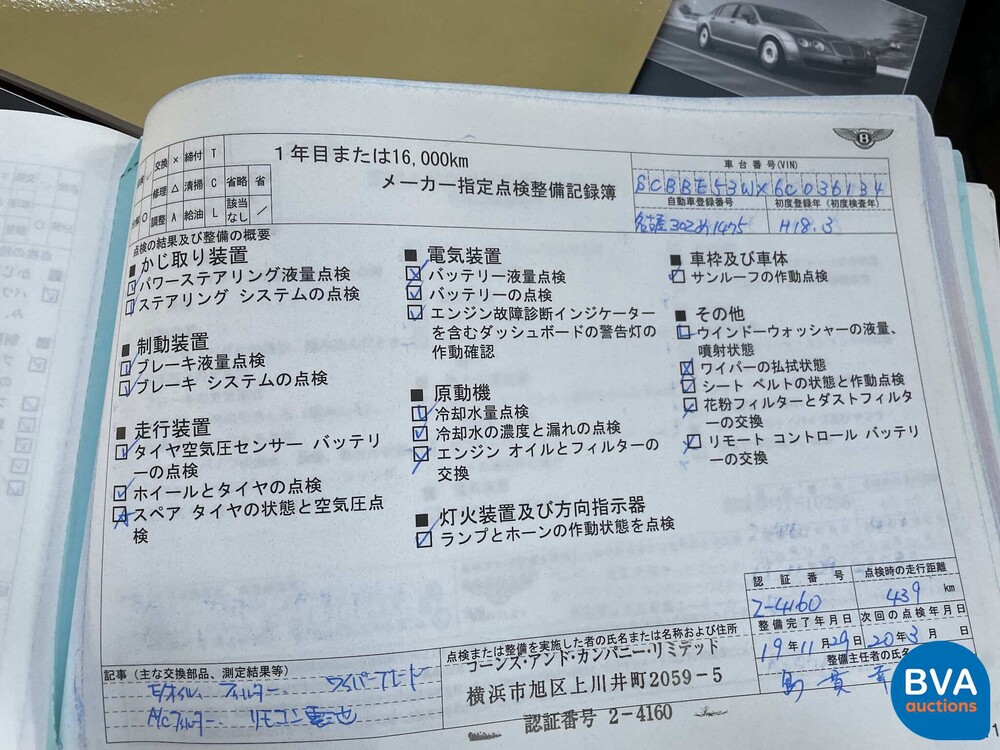 交換 × 締付 T
修理 △ 清掃 C 省略 省
調整 A 給油 L 該当なし /
1年目または16,000km
メーカー指定点検整備記録簿
B
車台番号(VIN)
SCBBE53WX6C036134
自動車登録番号 初度登録年(初度検査年)
名古屋302 1475 H18.3
点検の結果及び整備の概要
■ かじ取り装置
パワーステアリング液量点検
ステアリング システムの点検
■ 制動装置
ブレーキ液量点検
ブレーキ システムの点検
■ 走行装置
タイヤ空気圧センサー バッテリ
ーの点検
ホイールとタイヤの点検
スペア タイヤの状態と空気圧点
検
■ 電気装置
バッテリー液量点検
バッテリーの点検
エンジン故障診断インジケーター
を含むダッシュボードの警告灯の
作動確認
■ 原動機
冷却水量点検
冷却水の濃度と漏れの点検
エンジン オイルとフィルターの
交換
■ 灯火装置及び方向指示器
ランプとホーンの作動状態を点検
■ 車枠及び車体
サンルーフの作動点検
■ その他
ウインドーウォッシャーの液量、
噴射状態
ワイパーの払拭状態
シート ベルトの状態と作動点検
花粉フィルターとダストフィルタ
ーの交換
リモート コントロール バッテリ
ーの交換
認証番号 点検時の走行距離
2-4160 439 km
整備完了年月日 次回の点検年月日
19年11月29日 20年3月 日
整備主任者の氏名
記事(主な交換部品、測定結果等)
E/オイル、フィルター、ワイパーブレード
A/Cフィルター、リモコン電池
点検または整備を実施した者の氏名または名称および住所
コーンズ・アンド・カンパニー・リミテッド
横浜市旭区上川井町2059-5
認証番号 2-4160
BVA
auctions